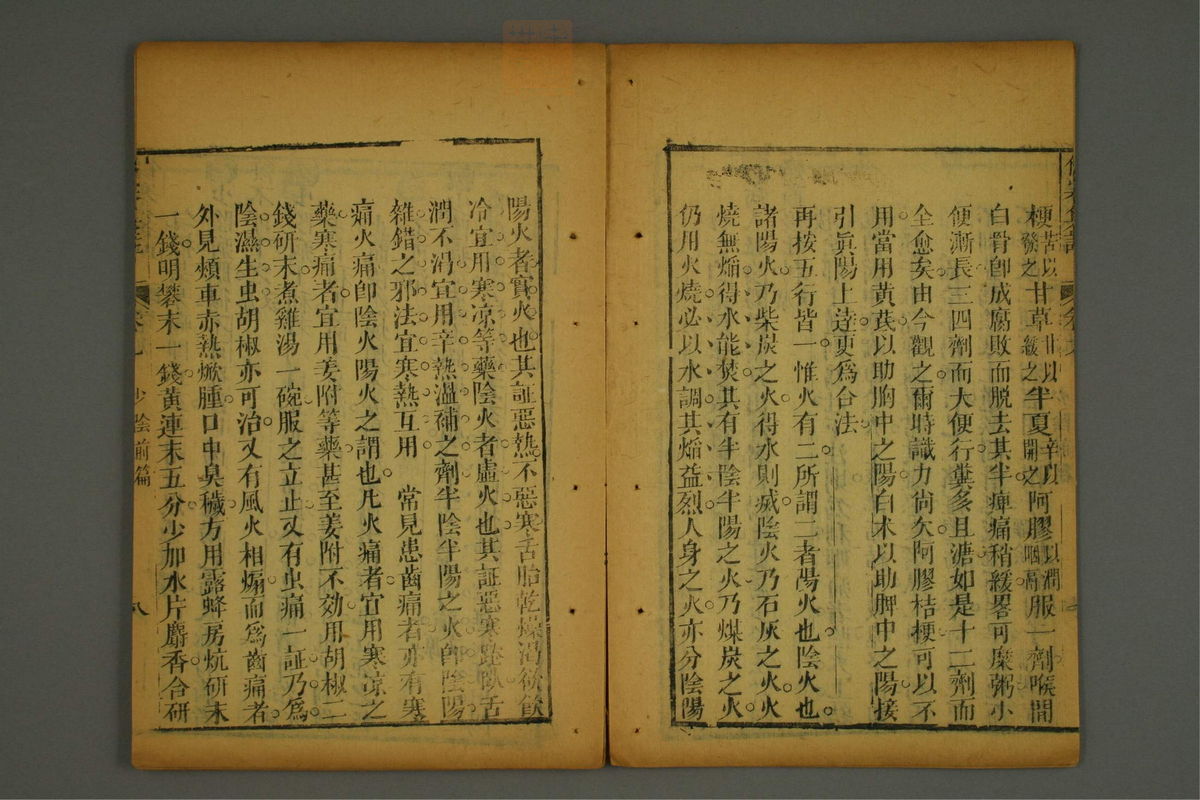 梗苦以發之甘草甘以緩之半夏辛以開之阿膠以潤咽膈服一劑喉間
白骨卽成腐敗而脫去其半痺痛稍緩畧可糜粥小
便漸長三四劑而大便行糞多且溏如是十二劑而
全愈矣由今觀之爾時識力尙欠阿膠桔梗可以不
用當用黃茋以助胸中之陽白朮以助脾中之陽接
引眞陽上達更爲合法
再按五行皆一惟火有二所謂二者陽火也陰火也
諸陽火乃柴炭之火得水則滅陰火乃石灰之火火
燒無焰得水能焚其有半陰半陽之火乃煤炭之火
仍用火燒必以水調其焰益烈人身之火亦分陰陽
陽火者實火也其証惡熱不惡寒舌胎乾燥渴欲飲
冷宜用寒凉等藥陰火者虛火也其証惡寒踡臥舌
潤不渴宜用辛熱溫補之劑半陰半陽之火卽陰陽
雜錯之邪法宜寒熱互用 常見患齒痛者亦有寒
痛火痛卽陰火陽火之謂也凡火痛者宜用寒凉之
藥寒痛者宜用姜附等藥甚至姜附不効用胡椒二
錢研末煮雞湯一碗服之立止又有虫痛一証乃爲
陰濕生虫胡椒亦可治又有風火相煽而爲齒痛者
外見頰車赤熱焮腫口中臭穢方用露蜂房炕研末
一錢明礬末一錢黃連末五分少加水片麝香合研
少陰前篇
八